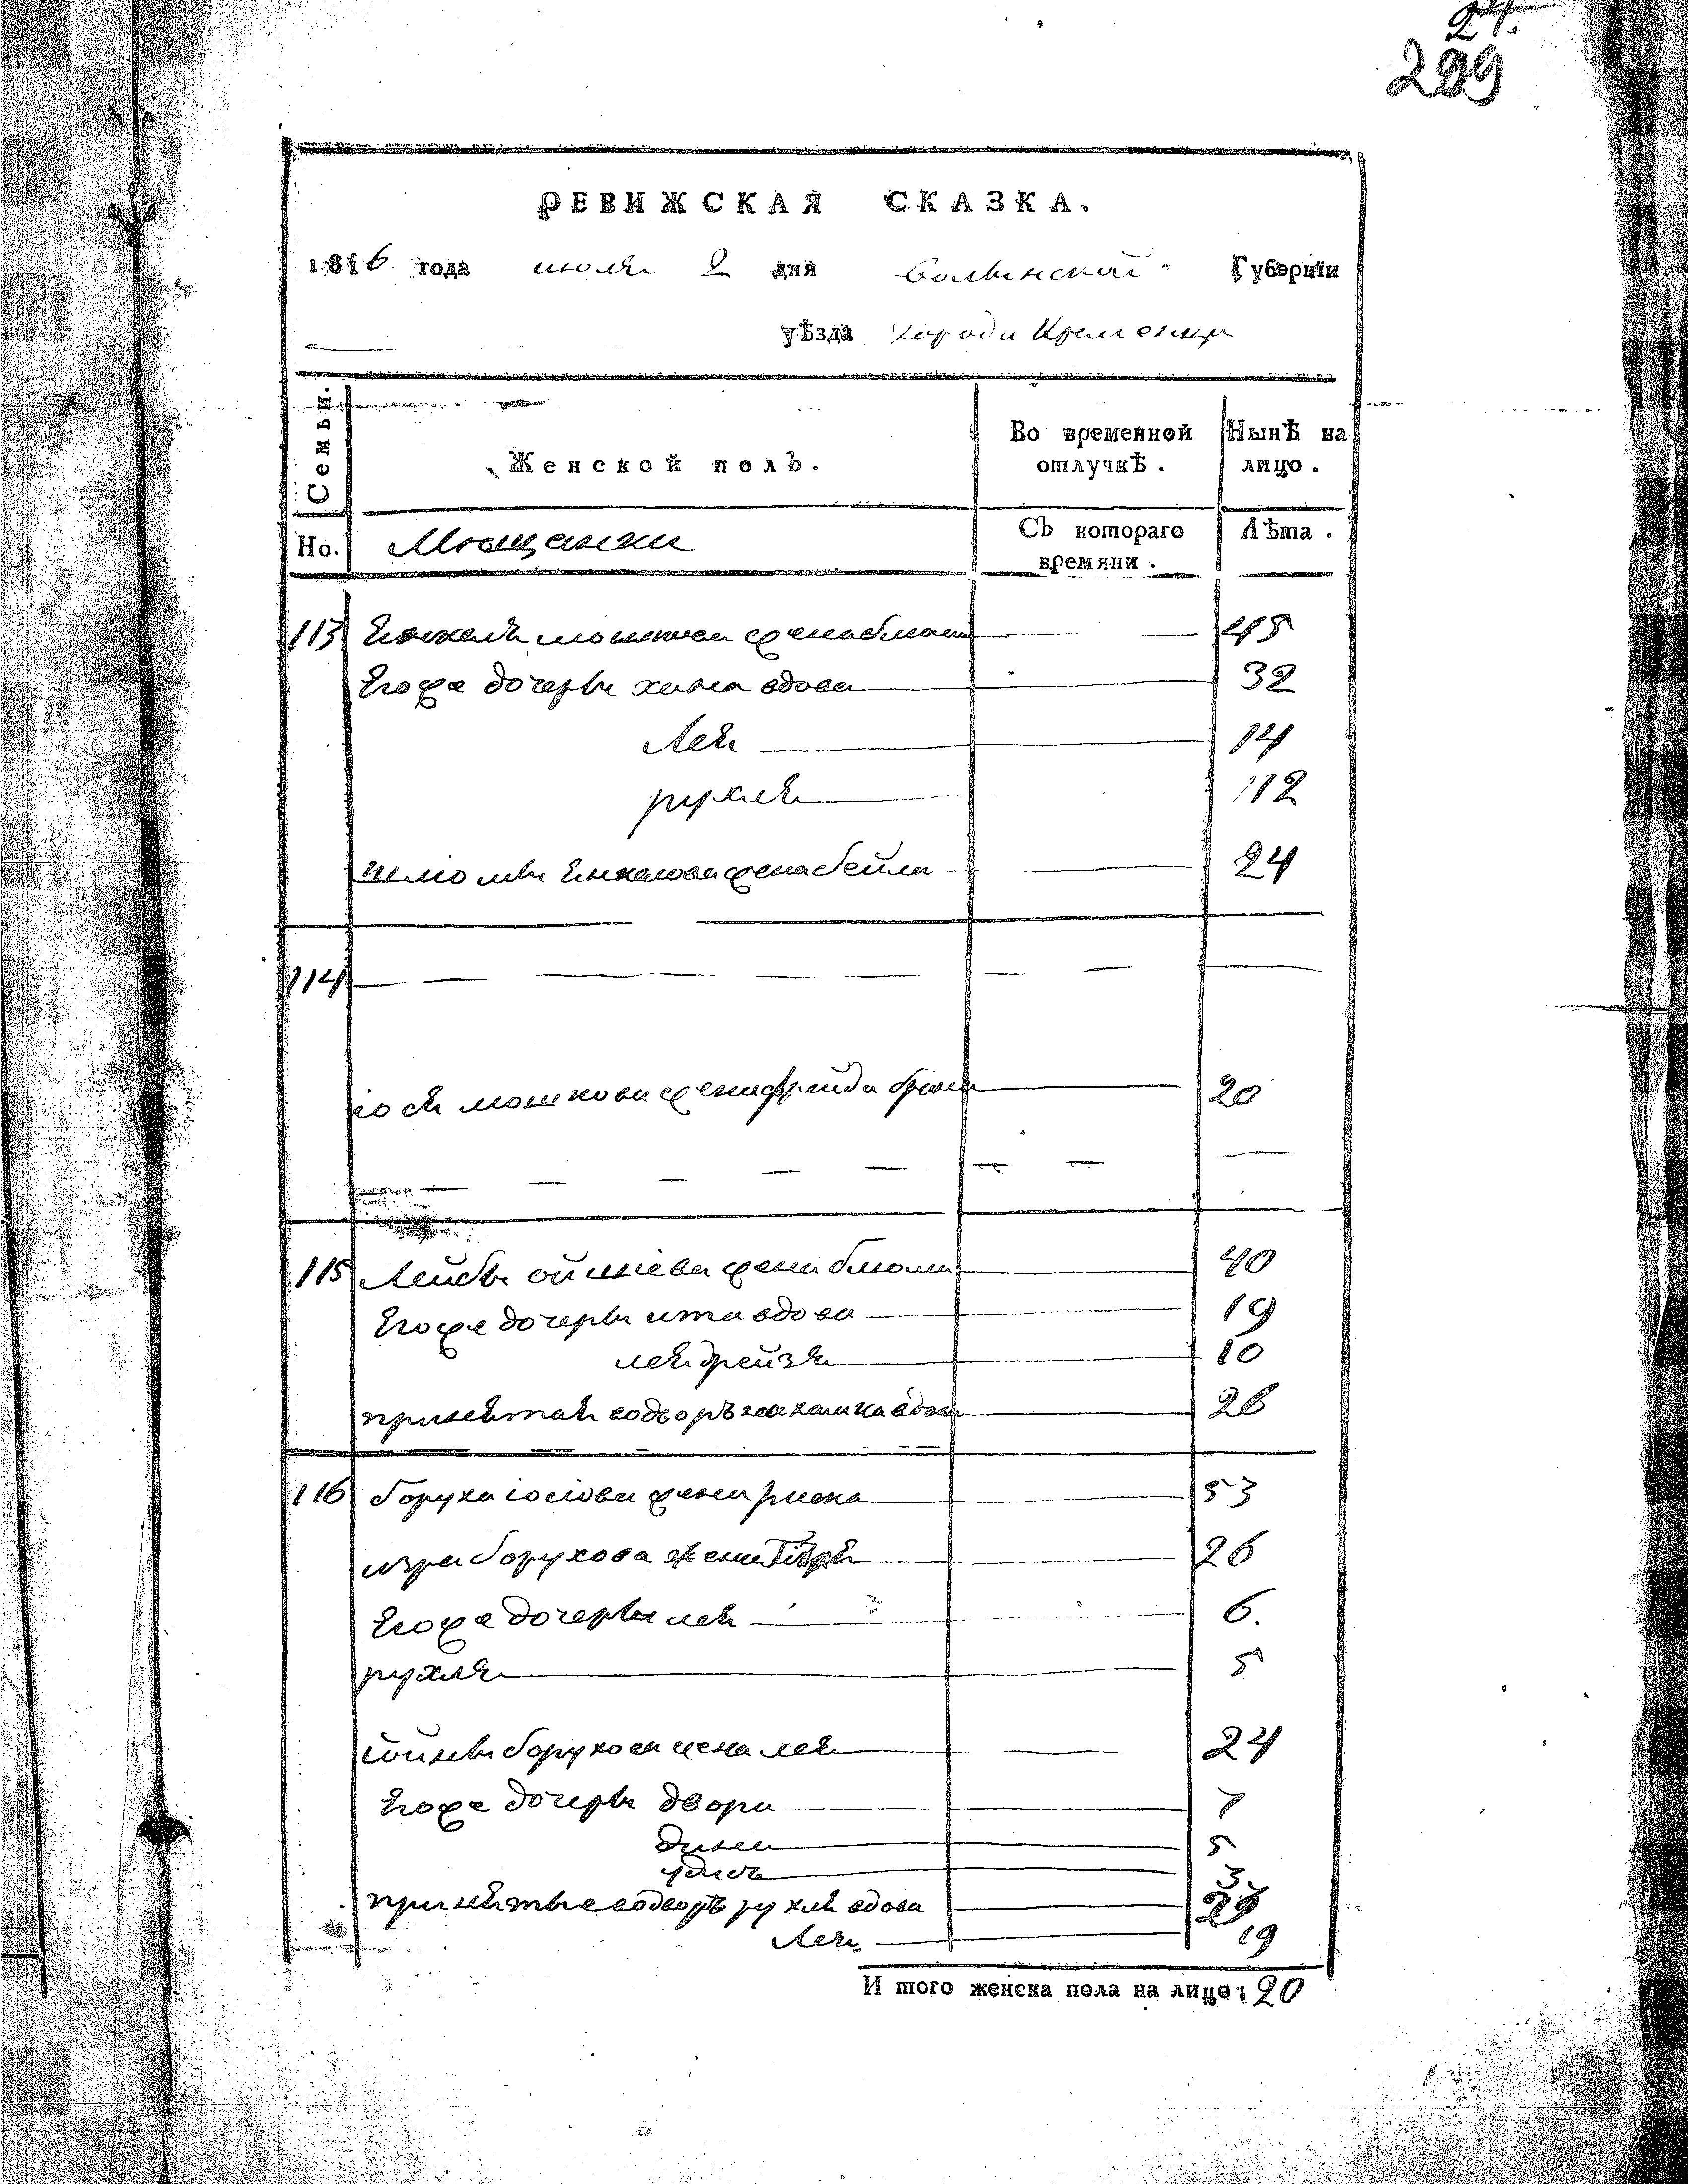 24.
299
РЕВИЖСКАЯ СКАЗКА.
1816 года июля 2 дня волынской Губернїи
уѣзда города Кременца
Семьи.
Женской полъ.
Во временной отлучкѣ.
Нынѣ на лицо.
Но.
Мещанки
Съ котораго времяни.
Лѣта.
113 мошкова жена блюма 45
Его же дочерьи хана вдова 32
Лея 14
рухля 12
шлиомы Янкелова жена бейла 24
114
іося мошкова жена фрейда брана 20
115 Лейбы жена блюма 40
Его же дочерьи ита вдова 19
лея дрейзя 10
принятая водворъ вдова 26
116 боруха іосіова жена риска 53
борухова жена 26
Его же дочерьи лея 6.
рухля 5
борухова жена лея 24
Его же дочерьи двора 7
дина 5
3
принятые водворъ рухля вдова
Лея 19
И того женска пола на лицо: 20